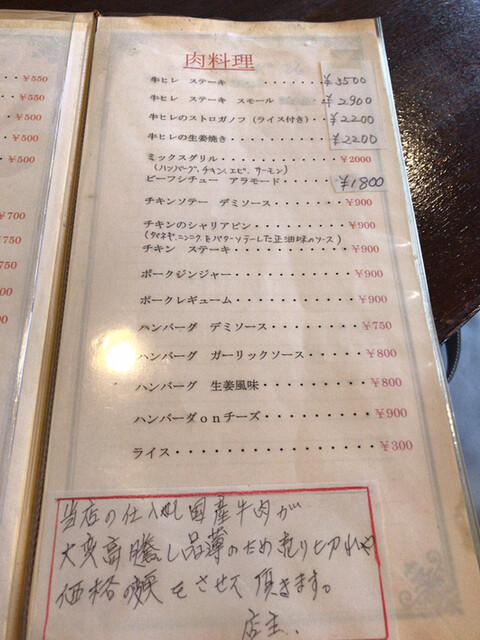 ¥550
¥550
¥500
¥500
¥500
¥700
肉料理
牛ヒレ ステーキ ・・・・・・・ ¥3500
牛ヒレ ステーキ スモール ・・ ¥2900
牛ヒレのストロガノフ（ライス付き）・・ ¥2200
牛ヒレの生姜焼き・・・・・・・・ ¥2200
ミックスグリル・・・・・・・・・・¥2000
(ハンバーグ、チキン、エビ、サーモン)
ビーフシチュー アラモード・・・・ ¥1800
チキンソテー デミソース・・・・・・¥900
チキンのシャリアピン・・・・・・・・¥900
(タマネギ、ニンニクをバターソテーした正油味のソース)
チキン ステーキ・・・・・・・・・・¥900
ポークジンジャー・・・・・・・・・・¥900
ポークレギューム・・・・・・・・・・¥900
ハンバーグ デミソース・・・・・・・¥750
ハンバーグ ガーリックソース・・・・¥800
ハンバーグ 生姜風味・・・・・・・・¥800
ハンバーグonチーズ・・・・・・・・¥900
ライス・・・・・・・・・・・・・・・¥300
当店の仕入れ国産牛肉が
大変高騰し品薄のため売り切れや
価格の変更をさせて頂きます。
店主、